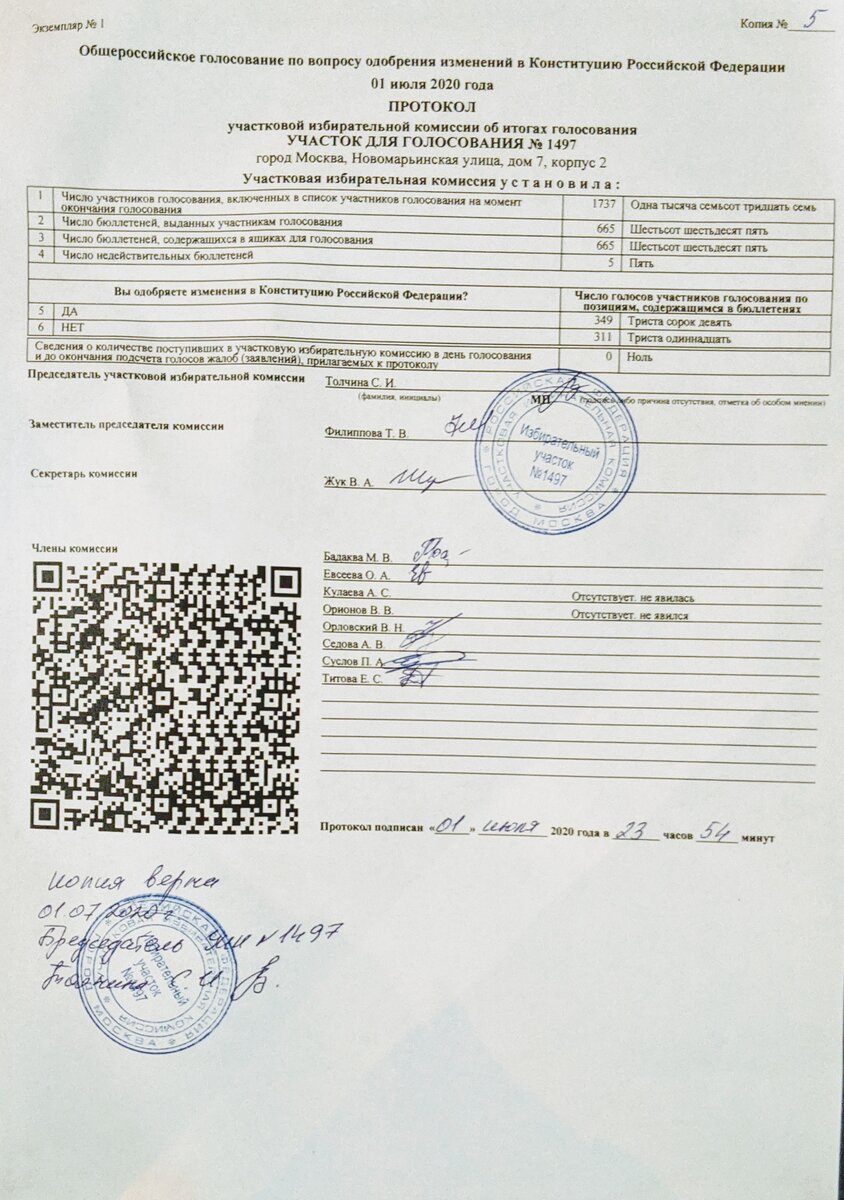 Экземпляр № 1
Копия № 5
Общероссийское голосование по вопросу одобрения изменений в Конституцию Российской Федерации
01 июля 2020 года
ПРОТОКОЛ
участковой избирательной комиссии об итогах голосования
УЧАСТОК ДЛЯ ГОЛОСОВАНИЯ № 1497
город Москва, Новомарьинская улица, дом 7, корпус 2
Участковая избирательная комиссия у с т а н о в и л а :
1 Число участников голосования, включенных в список участников голосования на момент
окончания голосования 1737 Одна тысяча семьсот тридцать семь
2 Число бюллетеней, выданных участникам голосования 665 Шестьсот шестьдесят пять
3 Число бюллетеней, содержащихся в ящиках для голосования 665 Шестьсот шестьдесят пять
4 Число недействительных бюллетеней 5 Пять
Вы одобряете изменения в Конституцию Российской Федерации?
Число голосов участников голосования по
позициям, содержащимся в бюллетенях
5 ДА 349 Триста сорок девять
6 НЕТ 311 Триста одиннадцать
Сведения о количестве поступивших в участковую избирательную комиссию в день голосования
и до окончания подсчета голосов жалоб (заявлений), прилагаемых к протоколу 0 Ноль
Председатель участковой избирательной комиссии Толчина С. И.
(фамилия, инициалы) МП (подпись либо причина отсутствия, отметка об особом мнении)
Заместитель председателя комиссии Филиппова Т. В.
Секретарь комиссии Жук В. А.
РОССИЙСКАЯ ФЕДЕРАЦИЯ * ГОРОД МОСКВА *
УЧАСТКОВАЯ ИЗБИРАТЕЛЬНАЯ КОМИССИЯ
Избирательный
участок
№1497
Члены комиссии
Бадаква М. В.
Евсеева О. А.
Кулаева А. С. Отсутствует. не явилась
Орионов В. В. Отсутствует. не явился
Орловский В. Н.
Седова А. В.
Суслов П. А.
Титова Е. С.
Протокол подписан «01» июля 2020 года в 23 часов 54 минут
копия верна
01.07.2020 г
Председатель УИК №1497
Толчина С. И.
РОССИЙСКАЯ ФЕДЕРАЦИЯ * ГОРОД МОСКВА *
УЧАСТКОВАЯ ИЗБИРАТЕЛЬНАЯ КОМИССИЯ
Избирательный
участок
№1497